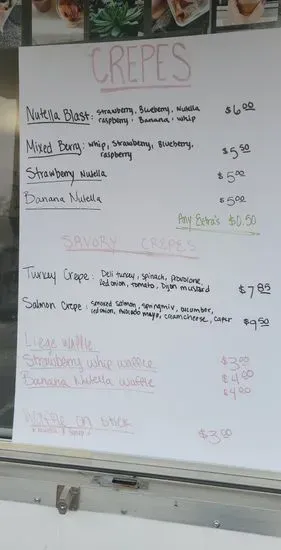 CREPES
Nutella Blast: strawberry, Blueberry, Nutella
raspberry, Banana, whip $6.00
Mixed Berry: whip, Strawberry, Blueberry,
raspberry $5.50
Strawberry Nutella $5.00
Banana Nutella $5.00
Any Extra's $0.50
SAVORY CREPES
Turkey Crepe: Deli turkey, spinach, provolone,
Red onion, tomato, Dijon mustard $7.85
Salmon Crepe: smoked salmon, springmix, cucumber,
red onion, Avocado mayo, creamcheese, caper $9.50
Liege Waffle $3.00
Strawberry whip waffle $4.00
Banana Nutella waffle $4.00
Waffle on stick $3.00